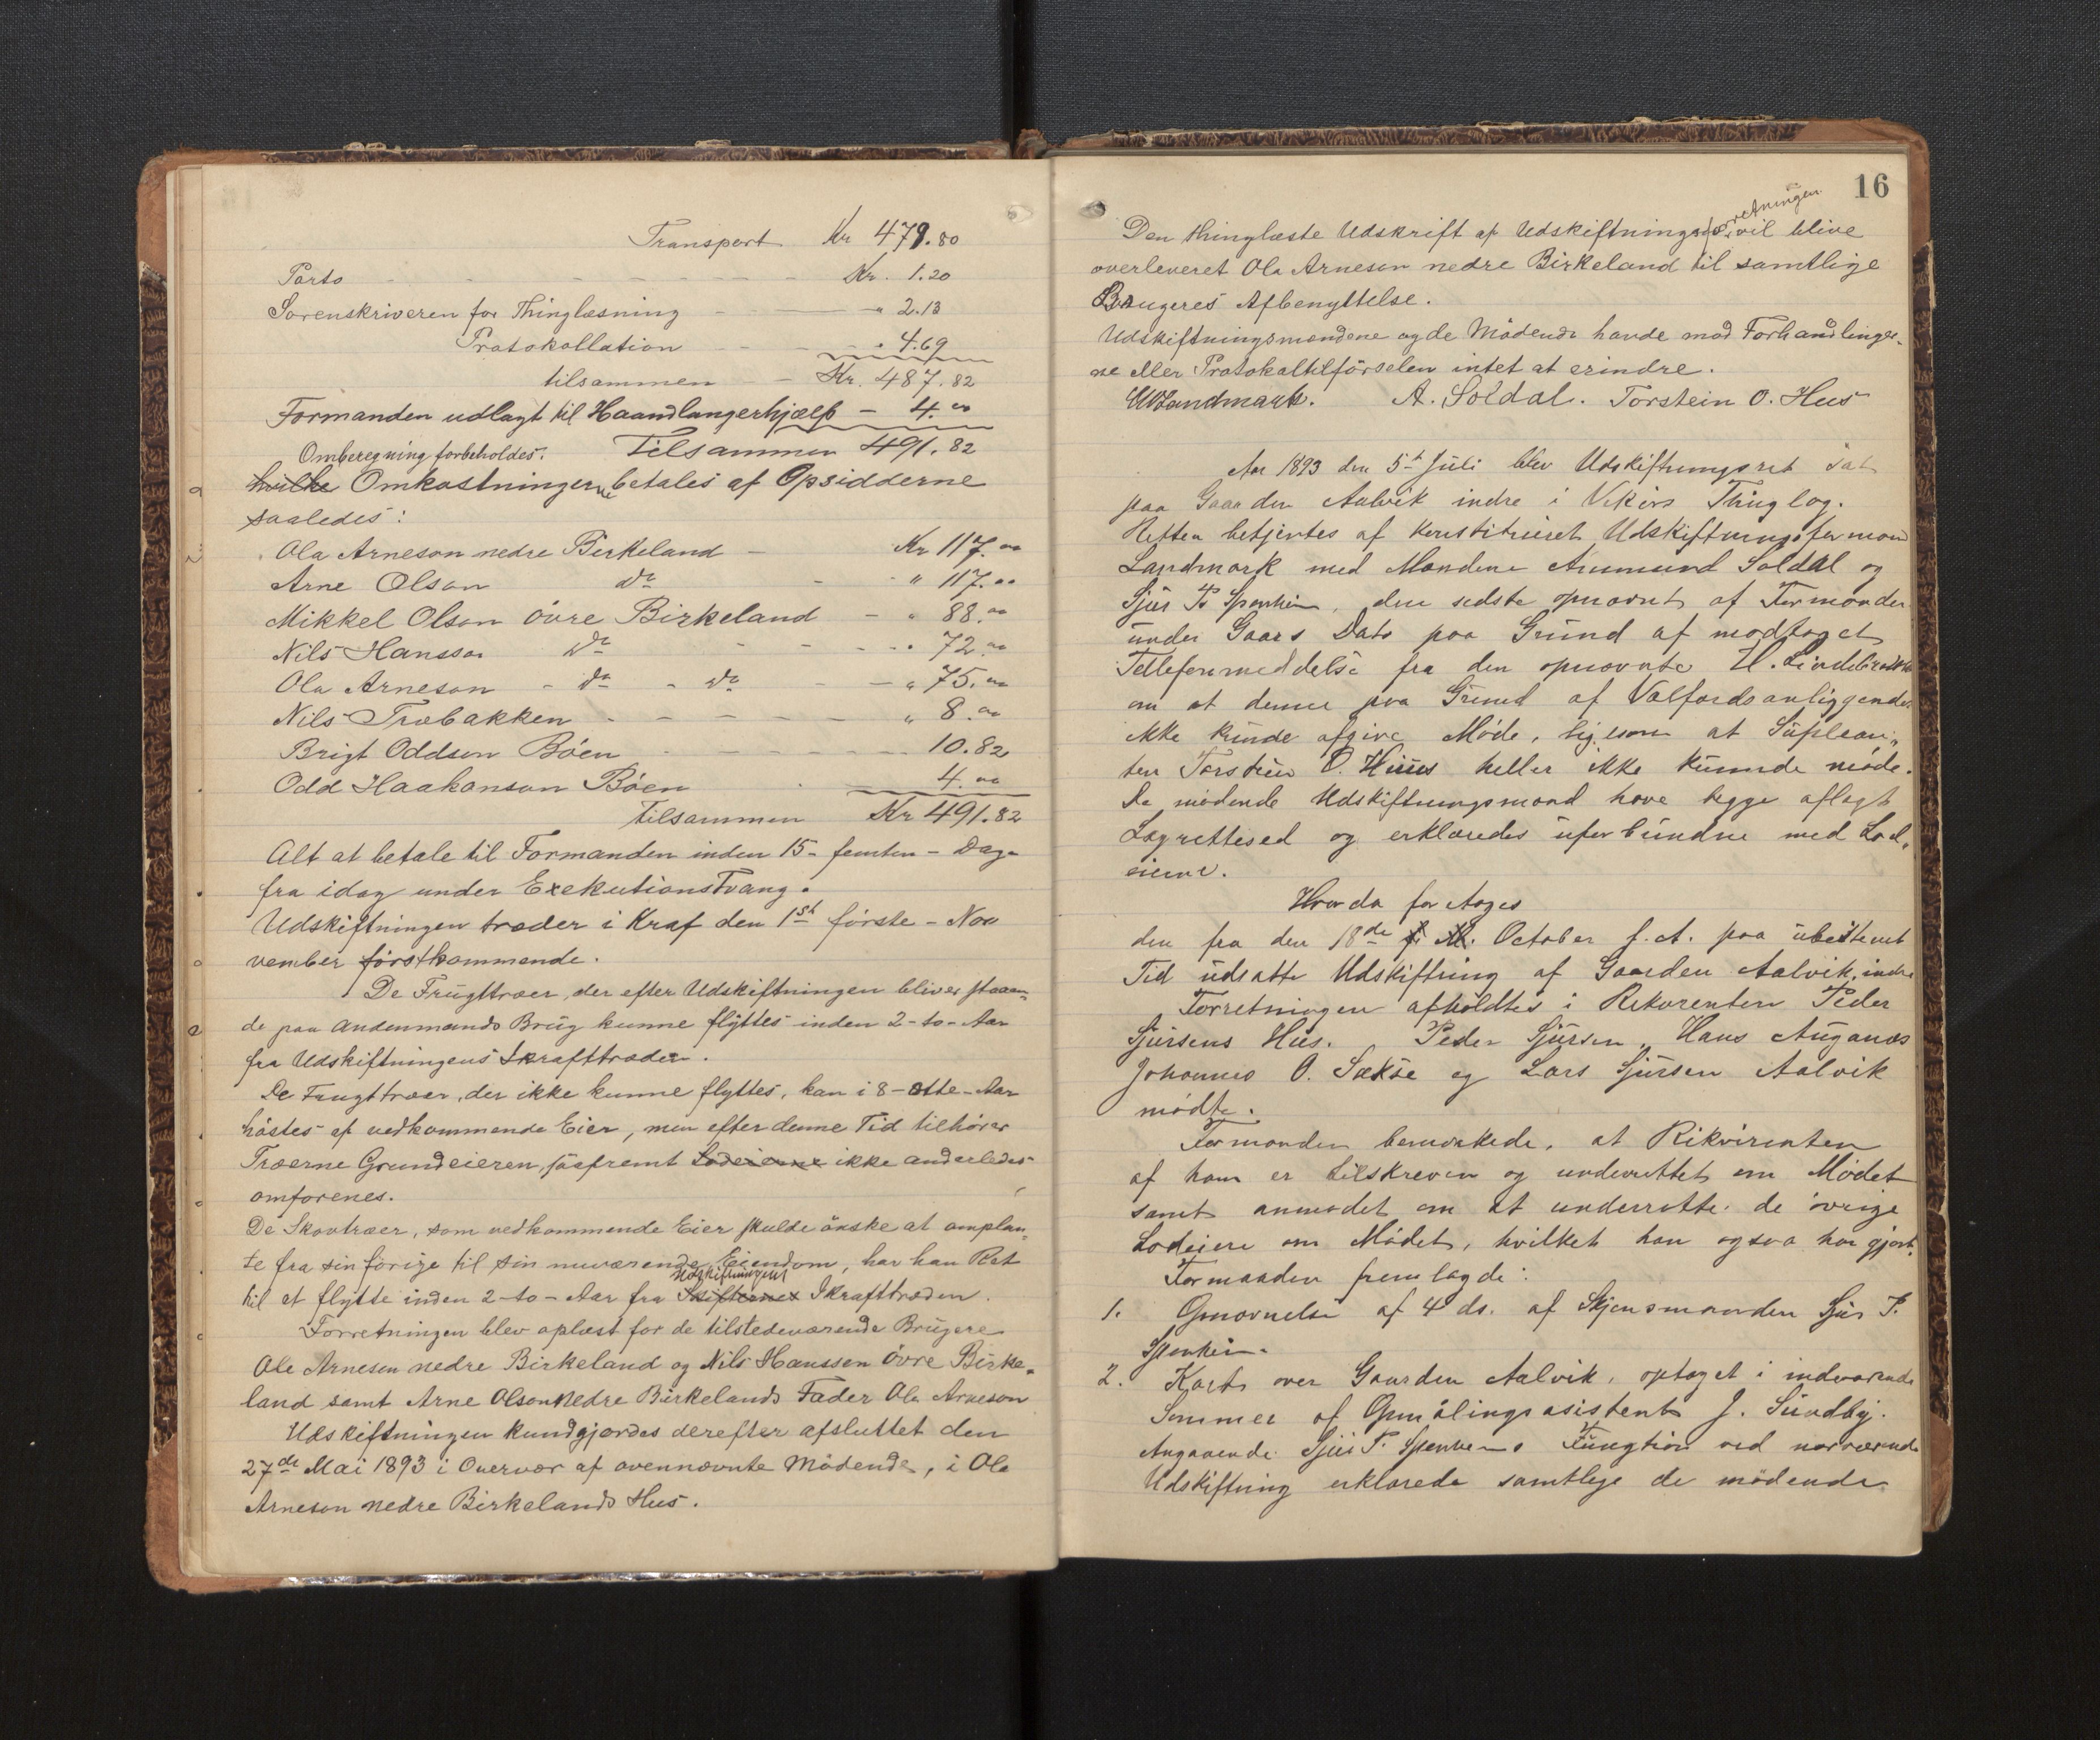 Transport Kr 479.80
Porto - - - - - Kr. 1.20
Sorenskriveren for Thinglæsning - - " 2.13
Protokollation - - " 4.69
tilsammen - Kr. 487.82
Formanden udlagt til Haandlangerhjælp - 4.00
Omberegning forbeholdes. Tilsammen 491.82
hvilke Omkostninger betales af Opsidderne
saaledes:
Ola Arneson nedre Birkeland - Kr 117.00
Arne Olson do - " 117.00
Mikkel Olson övre Birkeland - " 88.00
Nils Hansson do - - - " 72.00
Ola Arneson - do - do - - " 75.00
Nils Træbakken - - - - " 8.00
Brigt Oddson Böen - - - - 10.82
Odd Haakonson Böen 4.00
Tilsammen Kr 491.82
Alt at betale til Formanden inden 15- femten - Dage
fra idag under Exekutionstvang.
Udskiftningen træder i Kraf den 1st förste - Nov
vember förstkommende.
De Frugttræer, der efter Udskiftningen bliver staaen„
de paa andenmands Brug kunne flyttes inden 2-to-Aar
fra Udskiftningens Ikrafttræden.
De Frugttræer, der ikke kunne flyttes, kan i 8-otte-Aar
höstes af vedkommende Eier, men efter denne Tid tilhörer
Træerne Grundeieren, saafremt Lodeierne ikke anderledes
omforenes.
De Skovtræer, som vedkommende Eier skulde önske at omplan„
te fra sin forige til sin nuværende Eiendom, har han Ret
Udskiftningens
til at flytte inden 2-to-Aar fra Skifternes Ikrafttræden.
Forretningen blev oplæst for de tilstedeværende Brugere
Ole Arnesen nedre Birkeland og Nils Hanssen övre Birke„
land samt Arne Olson nedre Birkelands Fader Ola Arneson
Udskiftningen kundgjordes derefter afsluttet den
27de Mai 1893 i Overvær af ovennævnte Mödende, i Ole
Arneson nedre Birkelands Hus.
16
Den thinglæste Udskrift af Udskiftningsforretningen vil blive
overleveret Ola Arneson nedre Birkeland til samtlige
Brugeres Afbenyttelse.
Udskiftningsmændene og de Mödende havde mod Forhandlinger„
ne eller Protokoltilförselen intet at erindre.
Landmark. A. Soldal. Torstein O. Hus
Aar 1893 den 5t Juli blev Udskiftningsret sat
paa Gaarden Aalvik indre i Vikörs Thinglag.
Retten betjentes af konstitueret Udskiftningsformand
Landmark med Mændene Anmund Soldal og
Sjur P. Spenhein, den sidste opnævnt af Formanden
under Gaars Dato paa Grund af modtaget
Tellefonmeddelse fra den opnævnte H.
om at denne paa Grund af Valfærdsanliggender
ikke kunde afgive Möde, ligesom at Suplean„
ten Torstein O. Huus heller ikke kunde möde.
De mödende Udskiftningsmænd have begge aflagt
Lagrettesed og erklæredes uforbundne med Lod„
eierne.
Hvorda for Toges
den fra den 18de October f.A. paa ubestemt
Tid udsatte Udskiftning af Gaarden Aalvik, indre
Forretningen afholdtes i Rekvirenten Peder
Sjursens Hus. Peder Sjursen, Hans Auganæs
Johannes O. Sækse og Lars Sjursen Aalvik
mödte.
Formanden bemærkede, at Rikvirenten
af ham er tilskreven og underrettet om Mödet
samt anmodet om at underrette de övrige
Lodeiere om Mödet, hvilket han ogsaa har gjort.
Formanden fremlagde:
1. Opnævnelse af 4 ds. af Skjönsmanden Sjur P.
Spenhein.
2. Kart over Gaarden Aalvik, optaget i indeværende
Sommer af Opmålingsasistent J. Sundby.
Angaaende Sjur P. Spenheins Fungtion ved nærværende
Udskiftning erklærede samtlige de mödende